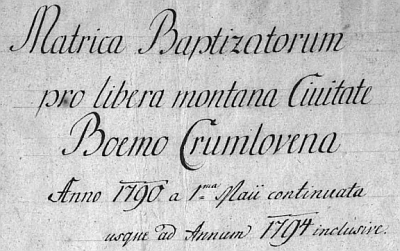 Matrica Baptizatorum
pro libera montana Ciuitate
Boemo Crumlovena
Anno 1790 a 1.ma Maii continuata
usque ad Annum 1794 inclusive.